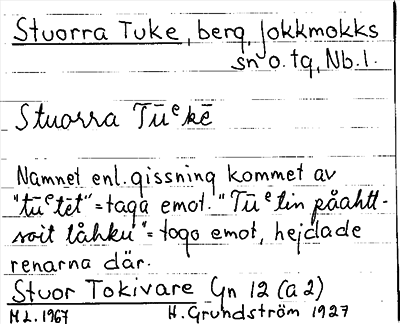 Stuorra Tuke, berg, Jokkmokks
sn o. tg, Nb. l.
Stuorra Tūᵉkē
Namnet enl. gissning kommet av
"tūᵉtēt" = taga emot. "Tūᵉtin påahtt-
soit låhku" = togo emot, hejdade
renarna där.
Stuor Tokivare Gn 12 (a 2)
M.L. 1967 H. Grundström 1927